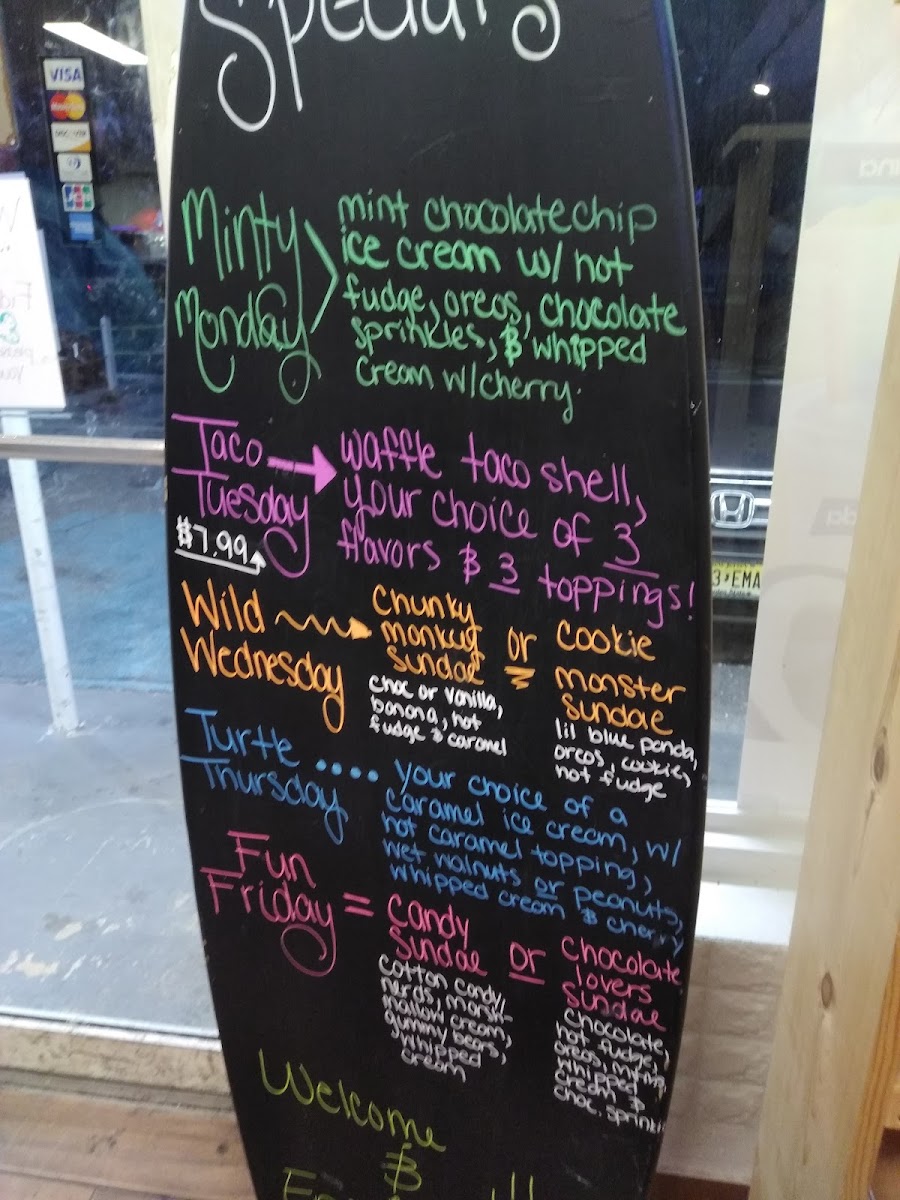 Specials
VISA
MasterCard
DISCOVER
JCB
Minty
Monday
mint chocolate chip
ice cream w/ hot
fudge, oreos, chocolate
sprinkles, & whipped
cream w/cherry.
Taco
Tuesday
$7.99
waffle taco shell,
your choice of 3
flavors & 3 toppings!
Wild
Wednesday
chunky
monkey
sundae
choc or vanilla,
banana, hot
fudge & caramel
or
cookie
monster
sundae
lil blue panda,
oreos, cookie,
hot fudge
Turtle
Thursday
....
your choice of a
caramel ice cream, w/
hot caramel topping,
wet walnuts or peanuts,
whipped cream & cherry
Fun
Friday =
candy
sundae
cotton candy,
nerds, marsh-
mallow cream,
gummy bears,
whipped
cream
or
chocolate
lovers
sundae
chocolate,
hot fudge,
oreos, mrnm,
whipped
cream &
choc. sprink
Welcome
&
3 EMA